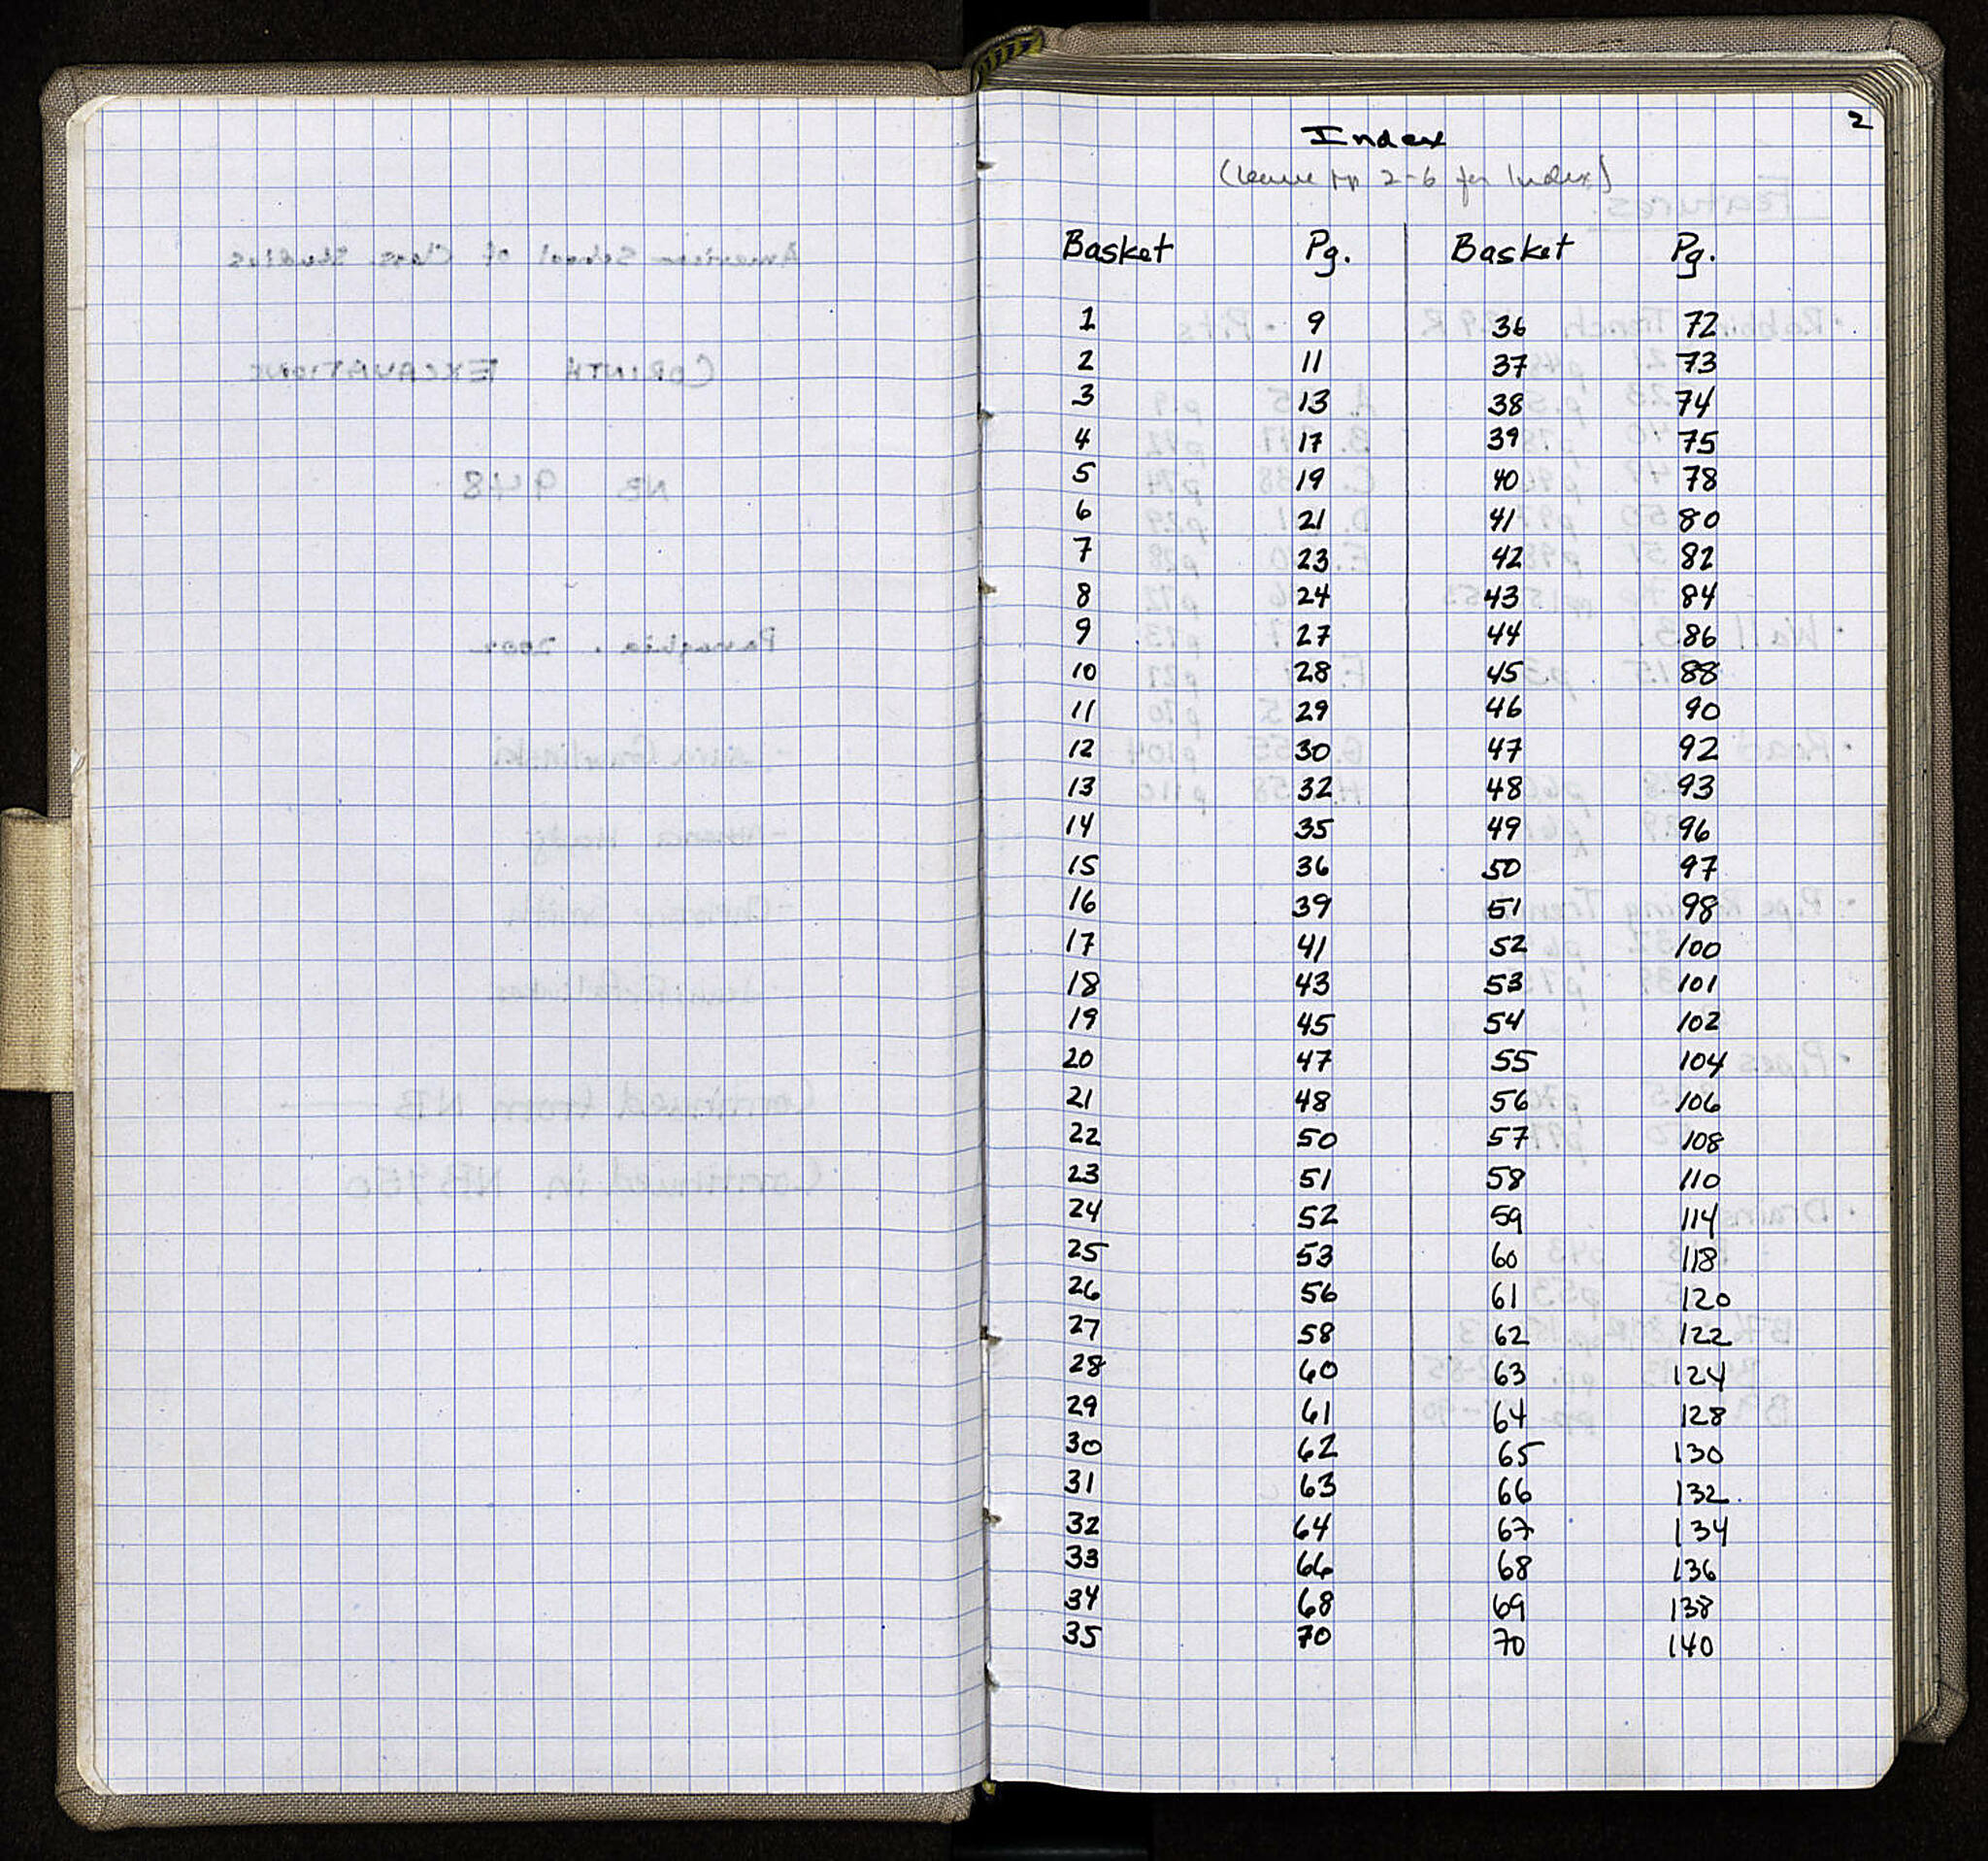 2
Index
(leave pp 2-6 for Index)
Basket Pg. Basket Pg.
1 9 36 72
2 11 37 73
3 13 38 74
4 17 39 75
5 19 40 78
6 21 41 80
7 23 42 82
8 24 43 84
9 27 44 86
10 28 45 88
11 29 46 90
12 30 47 92
13 32 48 93
14 35 49 96
15 36 50 97
16 39 51 98
17 41 52 100
18 43 53 101
19 45 54 102
20 47 55 104
21 48 56 106
22 50 57 108
23 51 58 110
24 52 59 114
25 53 60 118
26 56 61 120
27 58 62 122
28 60 63 124
29 61 64 128
30 62 65 130
31 63 66 132
32 64 67 134
33 66 68 136
34 68 69 138
35 70 70 140